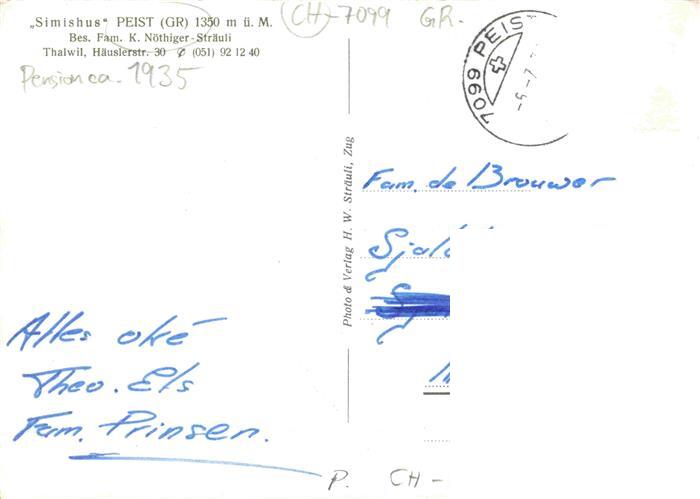 „Simishus“ PEIST (GR) 1350 m ü. M.
Bes. Fam. K. Nöthiger-Sträuli
Thalwil, Häuslerstr. 30 ✆ (051) 92 12 40
Pension ca. 1935
CH-7099 GR.
7099 PEIST
Photo & Verlag H. W. Sträuli, Zug
Fam. de Brouwer
Alles oké
Theo. Els
Fam. Prinsen.
P. CH-